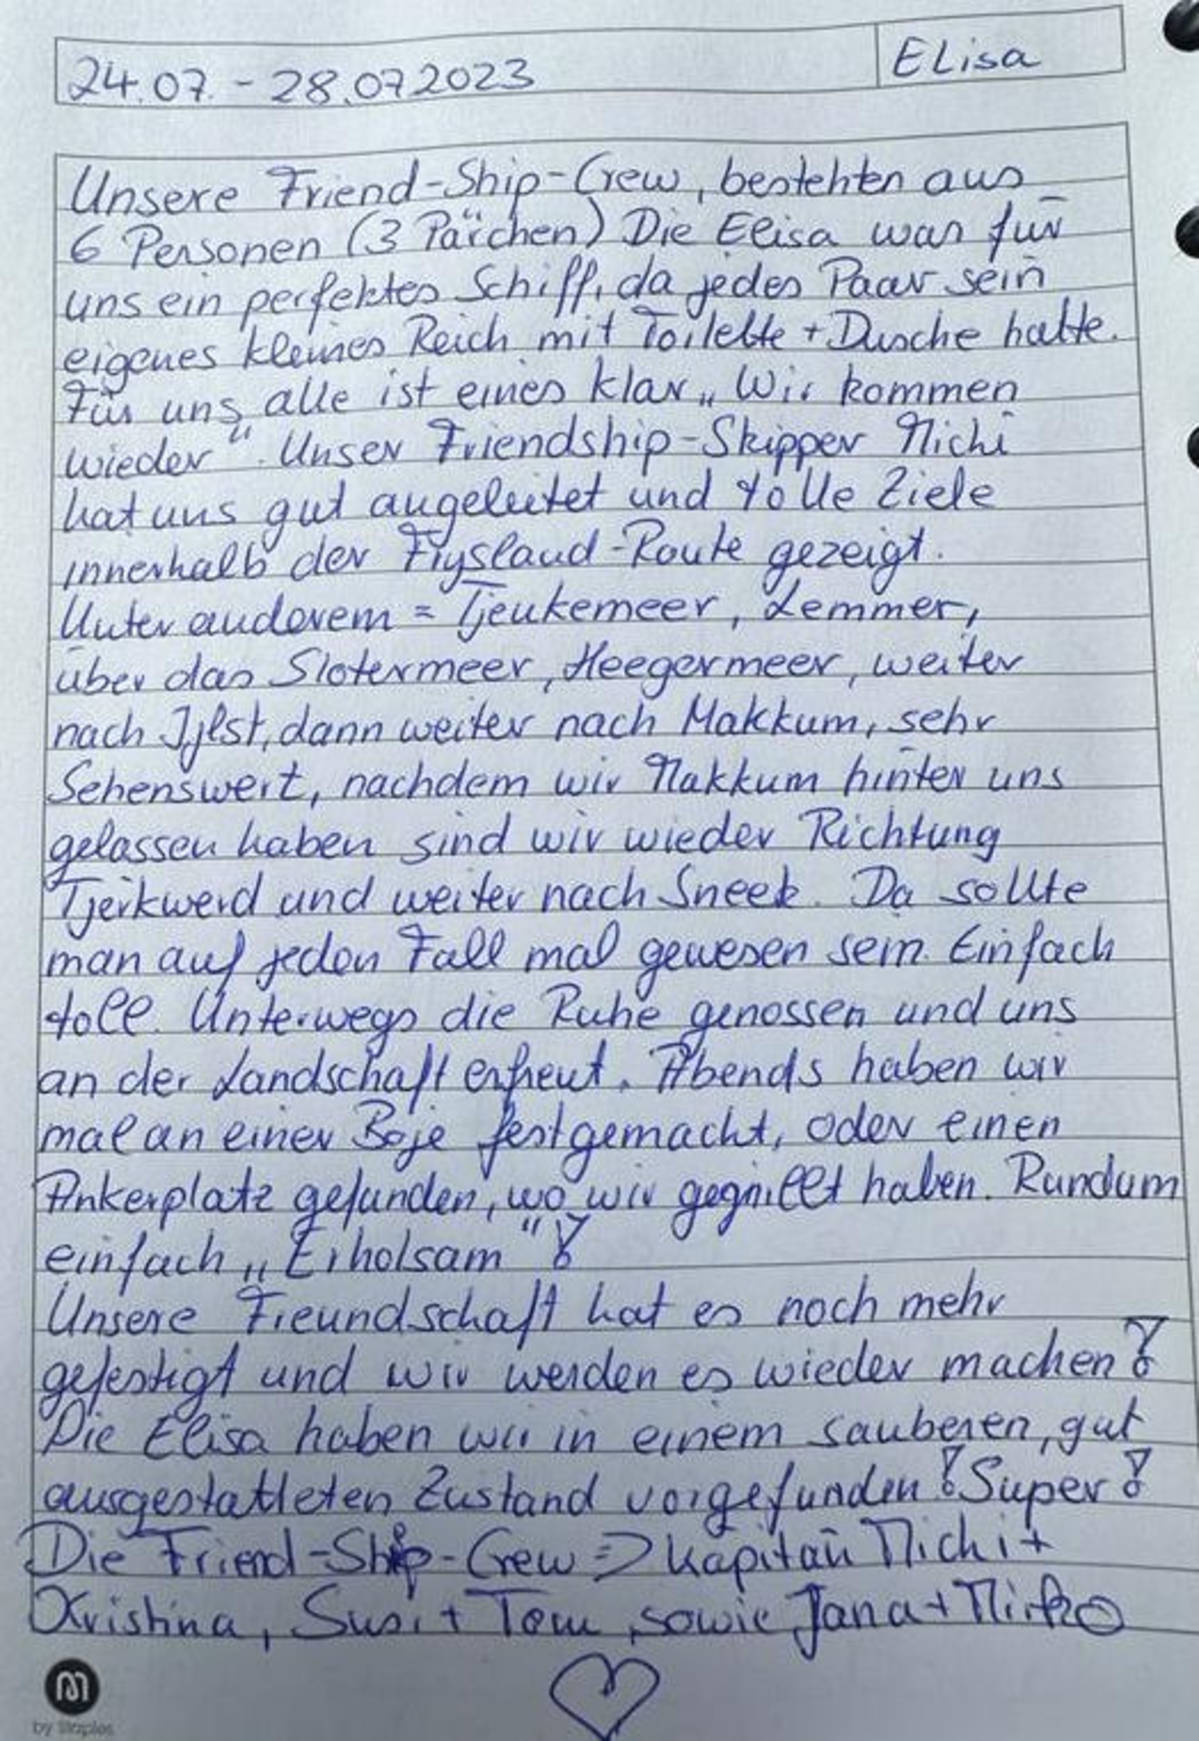 24.07. - 28.07.2023
Elisa
Unsere Friend-Ship-Crew, bestehten aus
6 Personen (3 Pärchen) Die Elisa war für
uns ein perfektes Schiff, da jedes Paar sein
eigenes kleines Reich mit Toilette + Dusche hatte.
Für uns alle ist eines klar „Wir kommen
wieder". Unser Friendship-Skipper Michi
hat uns gut angeleitet und tolle Ziele
innerhalb der Frysland-Route gezeigt.
Unter anderem = Tjeukemeer, Lemmer,
über das Slotermeer, Heegermeer, weiter
nach Ijlst, dann weiter nach Makkum, sehr
Sehenswert, nachdem wir Makkum hinter uns
gelassen haben sind wir wieder Richtung
Tjerkwerd und weiter nach Sneek. Da sollte
man auf jeden Fall mal gewesen sein. Einfach
toll. Unterwegs die Ruhe genossen und uns
an der Landschaft erfreut. Abends haben wir
mal an einer Boje festgemacht, oder einen
Ankerplatz gefunden, wo wir gegrillt haben. Rundum
einfach „Erholsam"!
Unsere Freundschaft hat es noch mehr
gefestigt und wir werden es wieder machen!
Die Elisa haben wir in einem sauberen, gut
ausgestatteten Zustand vorgefunden! Super!
Die Friend-Ship-Crew => Kapitän Michi +
Kristina, Susi + Tom, sowie Jana + Mirko
M
by Staples